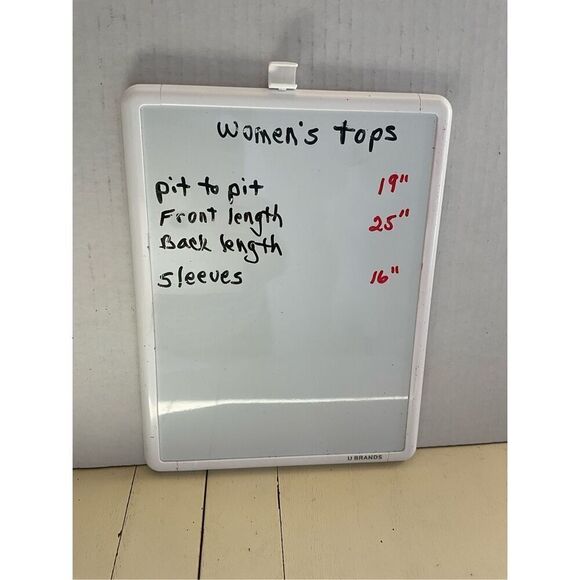 women's tops
pit to pit 19"
Front length 25"
Back length
sleeves 16"
U BRANDS